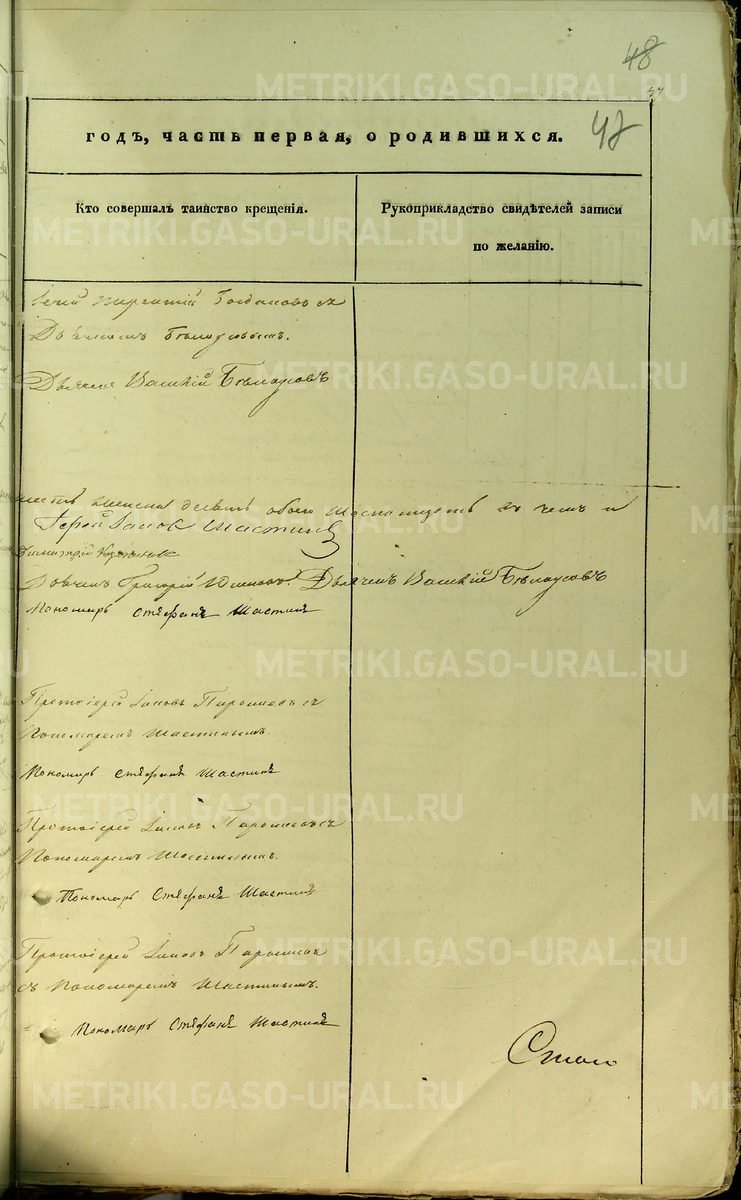 48
47
годъ, часть первая, о родившихся.
Кто совершалъ таинство крещенія.
Рукоприкладство свидѣтелей записи
по желанію.
Терентій Богдановъ съ
Дьячкомъ Бѣлоусовымъ.
Дьячекъ Василій Бѣлоусовъ
женска девять обоего въ чемъ и
Іерей Іаковъ Шастинъ
Димитрій
Григорій Дьячекъ Василій Бѣлоусовъ
Пономарь Стефанъ Шастинъ
Протоіерей Іаковъ съ
Пономаремъ Шастинымъ.
Пономарь Стефанъ Шастинъ
Протоіерей Іаковъ съ
Пономаремъ Шастинымъ.
Пономарь Стефанъ Шастинъ
Протоіерей Іаковъ
съ Пономаремъ Шастинымъ.
Пономарь Стефанъ Шастинъ
METRIKI.GASO-URAL.RU